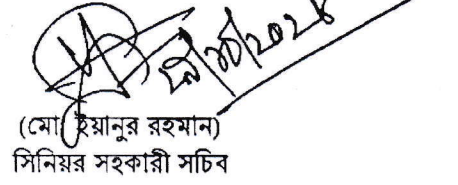 (মো ইয়ানুর রহমান)
সিনিয়র সহকারী সচিব